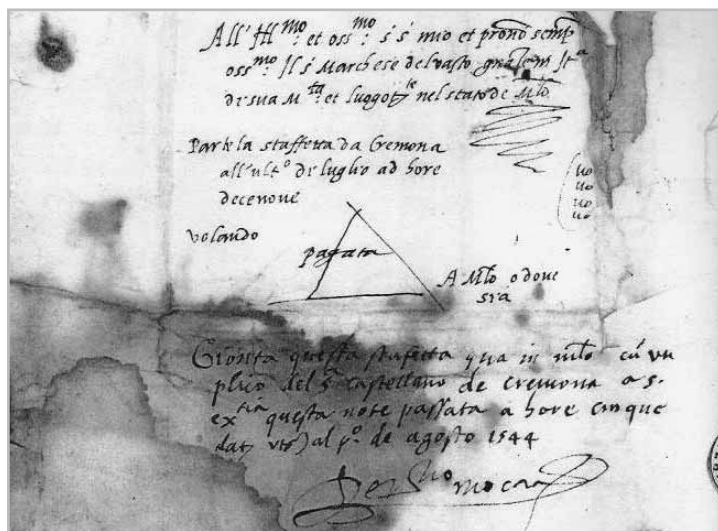 All' Ill^mo: et oss^mo s s mio et pron̄o semp
oss^mo: Il s Marchese del vasto gn̄ale in It^a
de sua M^ta: et luggot^te nel stato de Mlō
Parte la staffetta da Cremona
all'ult^o de luglio ad hore
decenove
volando
pagata
A Mlō o dove
sra
Gionta questa stafetta qua in mlō cū un
plico del s^r castellano de cremona a s.
ex^tia questa note passata a hore cinque
dat) al p^o. de agosto 1544